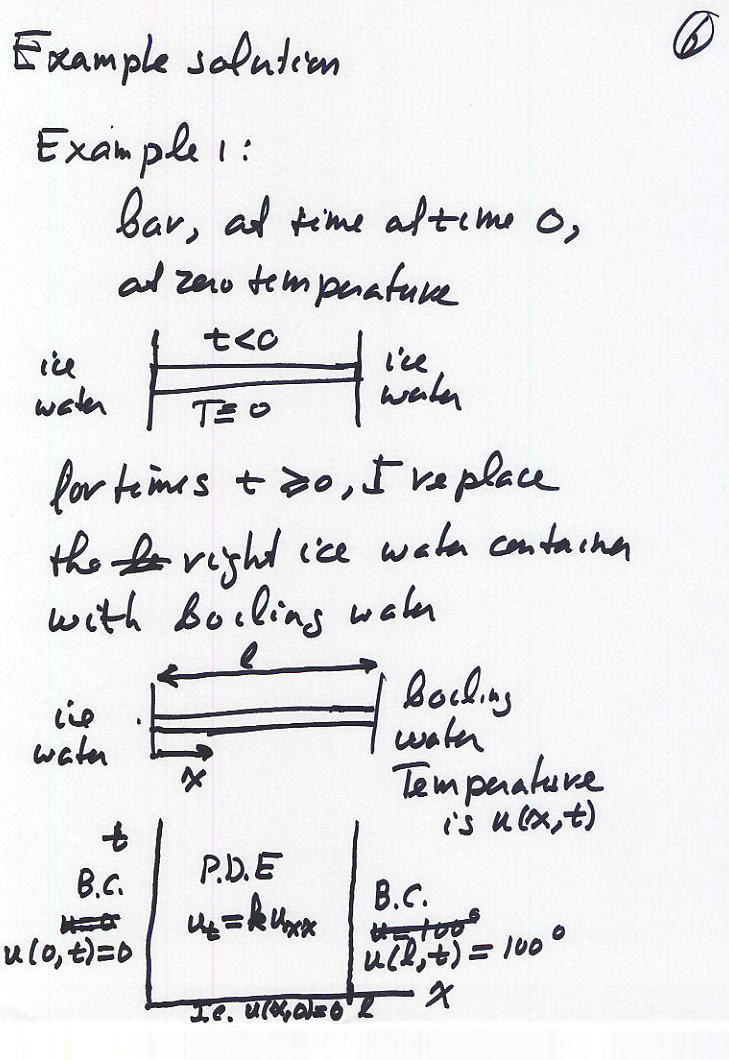 6
Example solution
Example 1:
bar, at time at time 0,
at zero temperature
t<0
ice
water
ice
water
T≡0
for times t ≥ 0, I replace
the right ice water container
with boiling water
l
ice
water
boiling
water
x
Temperature
is u(x,t)
t
B.C.
u=0
u(0,t)=0
P.D.E
u_t = k u_xx
B.C.
u=100°
u(l,t) = 100°
x
I.C. u(x,0)=0 l